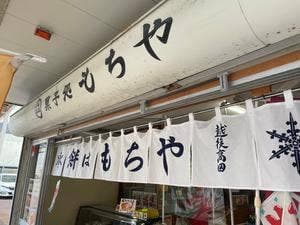 菓子処もちや
氷餅はもちや
越後高田